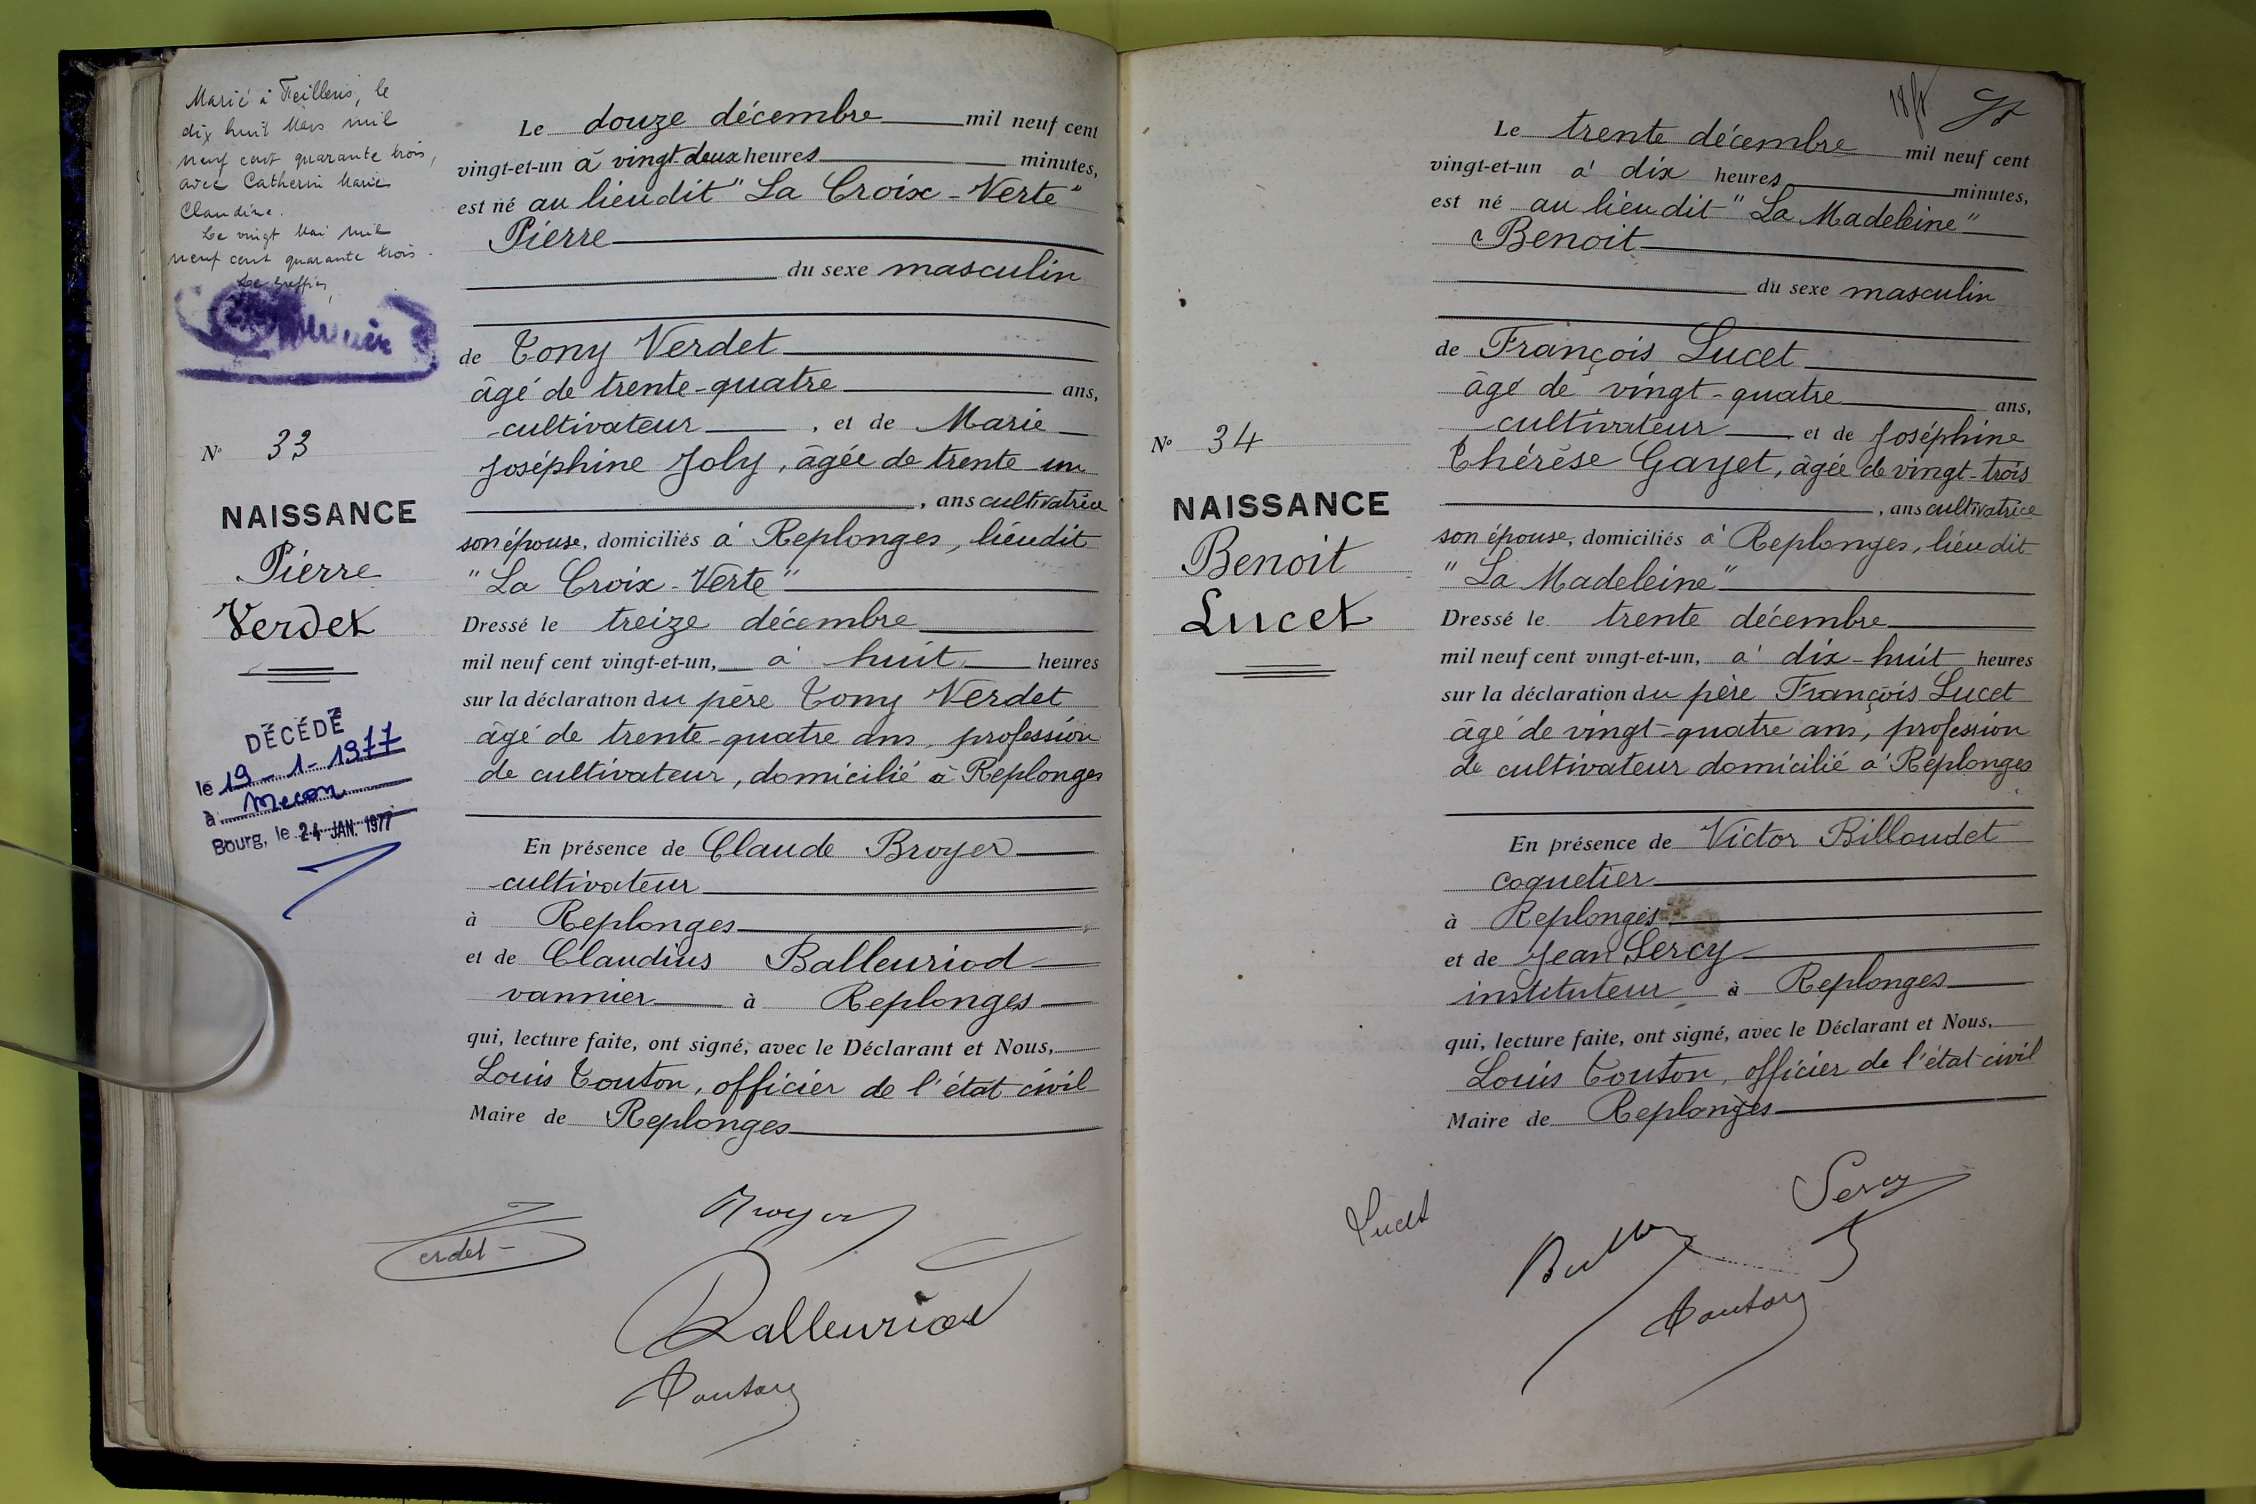 Marié à Feillens, le
dix huit Mars mil
neuf cent quarante trois,
avec Catherin Marie
Claudine.
Le vingt Mai mil
neuf cent quarante trois.
Le Greffier,
N° 33
NAISSANCE
Pierre
Verdet
DÉCÉDÉ
le 19-1-1977
à Macon
Bourg, le 24 JAN. 1977
Le douze décembre mil neuf cent
vingt-et-un à vingt-deux heures minutes,
est né au lieu dit "La Croix-Verte"
Pierre
du sexe masculin
de Tony Verdet
âgé de trente-quatre ans,
cultivateur , et de Marie
Joséphine Joly, âgée de trente un
, ans cultivatrice
son épouse, domiciliés à Replonges, lieu dit
"La Croix-Verte"
Dressé le treize décembre
mil neuf cent vingt-et-un, à huit heures
sur la déclaration du père Tony Verdet
âgé de trente-quatre ans, profession
de cultivateur, domicilié à Replonges
En présence de Claude Broyer
cultivateur
à Replonges
et de Claudius Balleuriod
vannier à Replonges
qui, lecture faite, ont signé, avec le Déclarant et Nous,
Louis Touton, officier de l'état civil
Maire de Replonges
Broyer
Verdet
Balleuriod
Touton
18 ft
Le trente décembre mil neuf cent
vingt-et-un à dix heures minutes,
est né au lieu dit "La Madeleine"
Benoit
du sexe masculin
de François Lucet
âgé de vingt-quatre ans,
cultivateur et de Joséphine
Thérèse Gayet, âgée de vingt-trois
, ans cultivatrice
son épouse, domiciliés à Replonges, lieu dit
"La Madeleine"
Dressé le trente décembre
mil neuf cent vingt-et-un, à dix-huit heures
sur la déclaration du père François Lucet
âgé de vingt-quatre ans, profession
de cultivateur domicilié à Replonges
En présence de Victor Billoudet
coquetier
à Replonges
et de Jean Sercy
instituteur à Replonges
qui, lecture faite, ont signé, avec le Déclarant et Nous,
Louis Touton, officier de l'état-civil
Maire de Replonges
N° 34
NAISSANCE
Benoit
Lucet
Sercy
Lucet
Touton